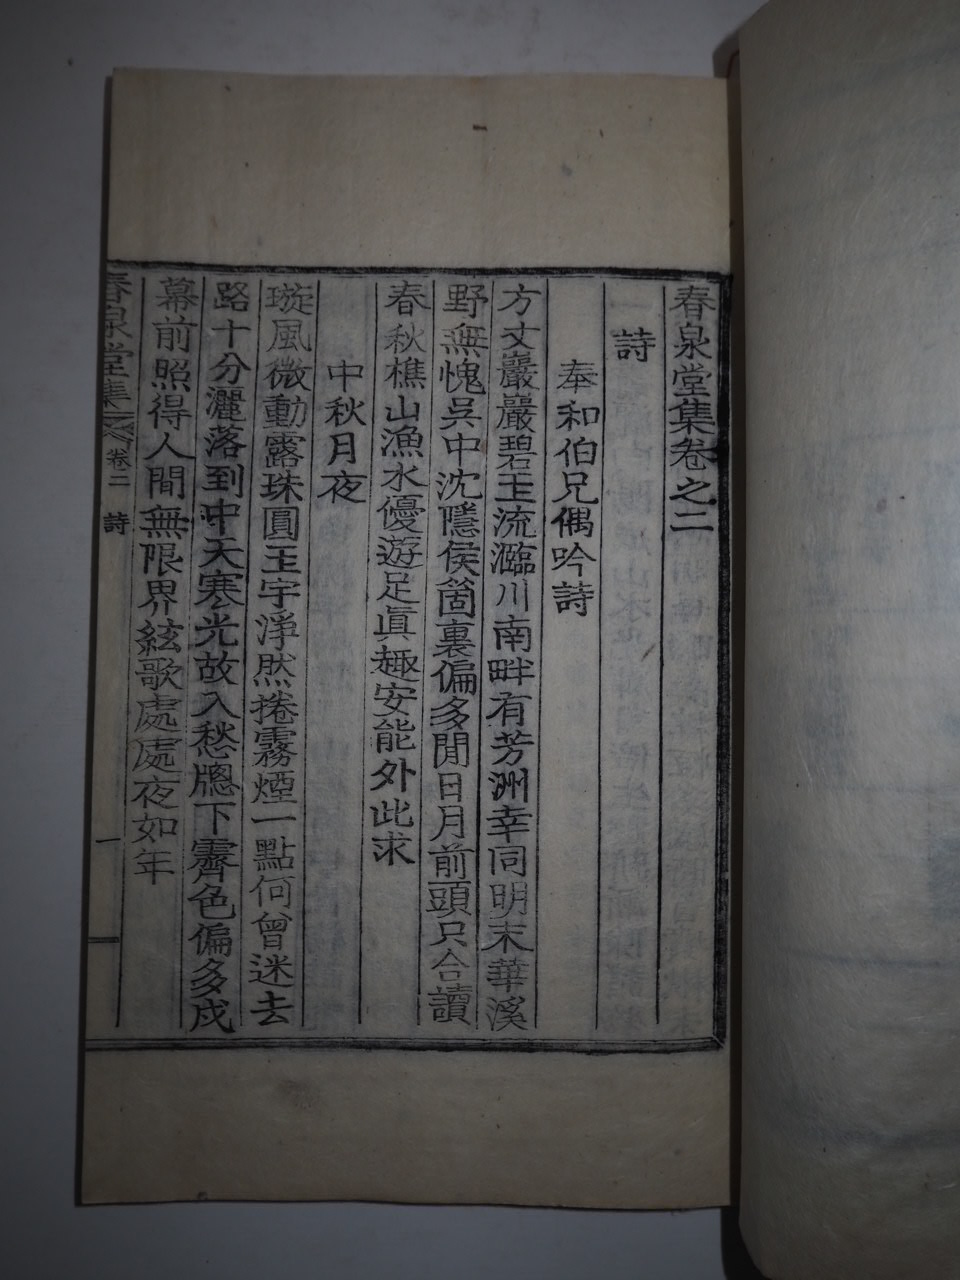 春泉堂集卷之二
詩
奉和伯兄偶吟詩
方丈巖巖碧玉流瀶川南畔有芳洲幸同明末華溪
野無愧吳中沈隱侯箇裏偏多閒日月前頭只合讀
春秋樵山漁水優遊足眞趣安能外此求
中秋月夜
璇風微動露珠圓玉宇淨然捲霧煙一點何曾迷去
路十分灑落到中天寒光故入愁牕下霽色偏多戍
幕前照得人間無限界絃歌處處夜如年
春泉堂集 卷二 詩 一